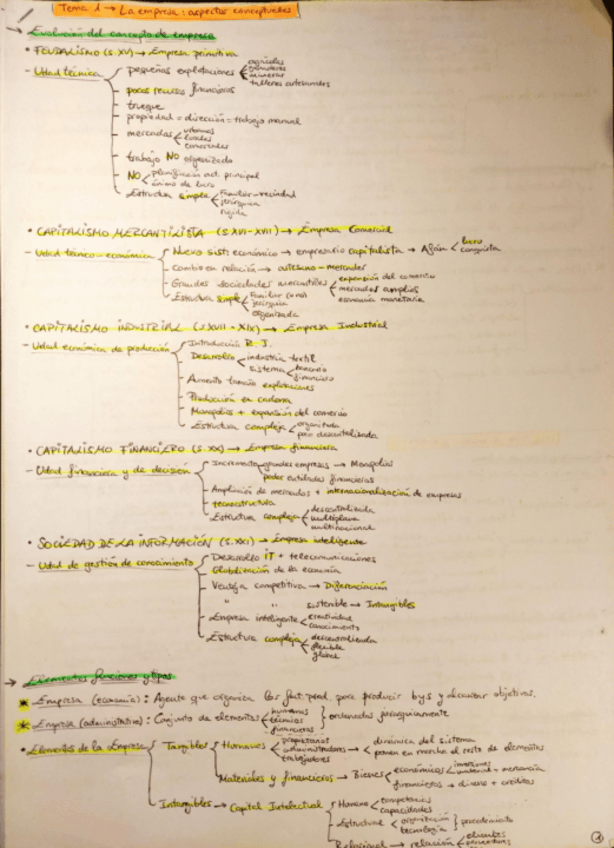 Tema 1 → La empresa: aspectos conceptuales
→ Evolución del concepto de empresa
• FEUDALISMO (s. XV) → Empresa primitiva
- Udad técnica
- pequeñas explotaciones
agrícolas
ganaderas
mineras
talleres artesanales
- pocos recursos financieros
- trueque
- propiedad = dirección = trabajo manual
- mercados
urbanos
locales
comarcales
- trabajo NO organizado
- NO
planificación act. principal
ánimo de lucro
- Estructura simple
familiar-vecindad
jerárquica
rígida
• CAPITALISMO MERCANTILISTA (s. XVI-XVII) → Empresa Comercial
- Udad técnico-económica
- Nuevo sist. económico → empresario capitalista → Afán
lucro
conquista
- Cambio en relación → artesano-mercader
- Grandes sociedades mercantiles
expansión del comercio
mercados amplios
economía monetaria
- Estructura simple
familiar (o no)
jerarquía
organizada
• CAPITALISMO INDUSTRIAL (s. XVIII - XIX) → Empresa Industrial
- Udad económica de producción
- Introducción R. I.
- Desarrollo
industria textil
sistema
bancario
financiero
- Aumento tamaño explotaciones
- Producción en cadena
- Monopolios + expansión del comercio
- Estructura compleja
organizada
poco descentralizada
• CAPITALISMO FINANCIERO (s. XX) → Empresa financiera
- Udad financiera y de decisión
- Incremento
grandes empresas → Monopolios
poder entidades financieras
- Ampliación de mercados + internacionalización de empresas
- tecnoestructura
- Estructura compleja
descentralizada
multiplanta
multinacional
• SOCIEDAD DE LA INFORMACIÓN (s. XXI) → Empresa inteligente
- Udad de gestión de conocimiento
- Desarrollo IT + telecomunicaciones
- Globalización de la economía
- Ventaja competitiva → Diferenciación
" " sostenible → Intangibles
- Empresa inteligente
creatividad
conocimiento
- Estructura compleja
descentralizada
flexible
global
→ Elementos funciones y tipos
* Empresa (economía): Agente que organiza los fact. prod. para producir bys y alcanzar objetivos.
* Empresa (administrativa): Conjunto de elementos
humanos
técnicos
financieros
ordenados jerárquicamente
• Elementos de la Empresa
Tangibles
Humanos
propietarios
administradores
trabajadores
dinámica del sistema
ponen en marcha el resto de elementos
Materiales y financieros → Bienes
económicos
financieros → dinero + créditos
Intangibles → Capital Intelectual
Humano
competencias
capacidades
Estructural
organización
tecnología
procedimiento
Relacional → relación
clientes
proveedores
1